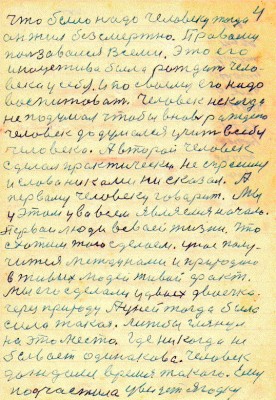 4
что было надо человеку тогда
он жил бессмертно. Правами
пользовался всеми. Это его
была рождать чело-
века у себя. И по своему его надо
воспитовать. Человек никогда
не подумал чтобы вновь рождено
человек додумался учить в себе
человеко. А второй человек
сделал практически не спросил
и слова никому не сказал. А
первому человеку говорит. Мы
у этом у во всем являемся начало.
Первая люди в своей жизни. Что
схотим того сделаем. у нас полу-
чится между нами и природою
в живых людей живой факт.
Мы его сделали у двоих двоечка.
через природу А у ней тогда было
сила такая. Лишь бы глянул
на это место. Где никогда не
бывает одинакова. Человек
дожидали время такого. Ему
подчастила увидеть ягодку